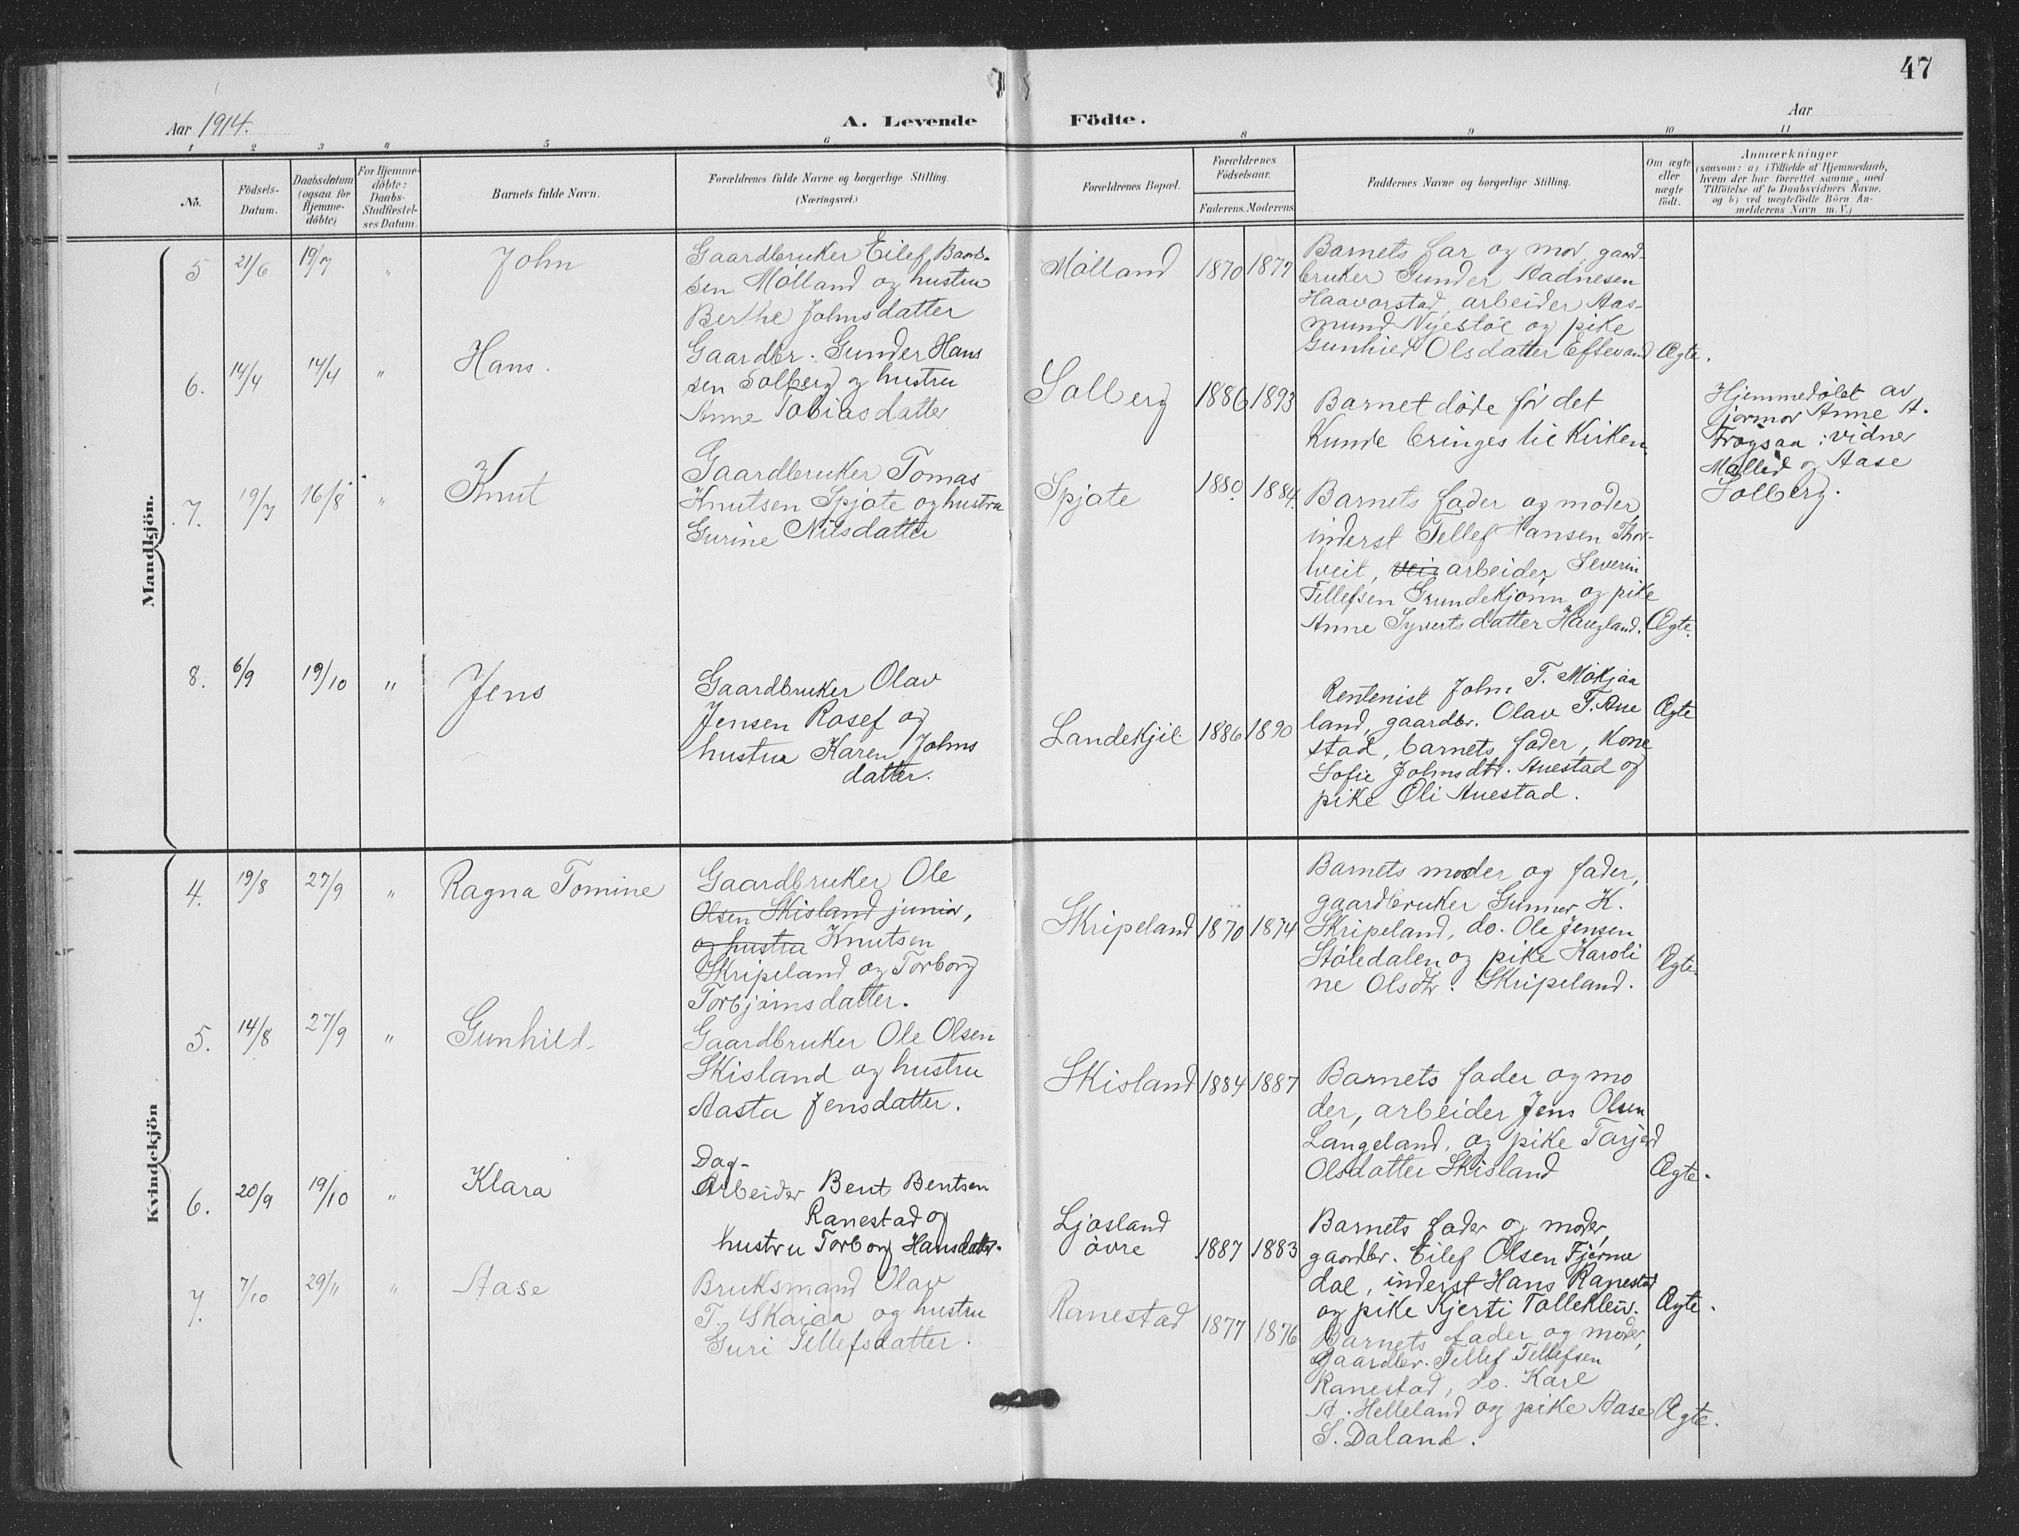 47
Aar 1914.
A. Levende Födte.
Aar
1 2 3 4 5 6 8 9 10 11
No.
Födsels-Datum.
Daabsdatum (ogsaa for Hjemmedöbte)
For Hjemmedöbte: Daabs-Stadfæstelses Datum.
Barnets fulde Navn.
Forældrenes fulde Navne og borgerlige Stilling.
(Næringsvei.)
Forældrenes Bopæl.
Forældrenes Födselsaar.
Faderens. Moderens.
Faddernes Navne og borgerlige Stilling.
Om ægte eller uægte födt.
Anmærkninger
(saasom: a) i Tilfælde af Hjemmedaab,
hvem der har forrettet samme, med
Tilföielse af to Daabsvidners Navne.
og b) ved uægtefödte Börn An-
melderens Navn m. V.)
Mandkjön.
5 21/6 19/7 " John
Gaardbruker Eilef Baards-
sen Mølland og hustru
Berthe Johnsdatter
Mølland 1870 1877
Barnets far og mor, gaard-
bruker Gunder Aadnesen
Haavorstad, arbeider Aas-
mund Nyestøl og pike
Gunhild Olsdatter Eftevand Ægte.
6. 14/4 14/4 " Hans.
Gaardbr. Gunder Hans
sen Solberg og hustru
Anne Tobiasdatter
Solberg 1886 1893
Barnet døde før det
kunde bringes til Kirken
Hjemmedøbt av
jormor Anne A.
Frøysaa: vidner
og Aase
Solberg.
7. 19/7 16/8 " Knut
Gaardbruker Tomas
Knutsen Spjote og hustru
Gurine Nilsdatter
Spjote 1880. 1884.
Barnets fader og moder,
inderst Tellef Hansen Thor-
tveit, arbeider Severin
Tellefsen Grundekjønn og pike
Anne Syvertsdatter Haugland. Ægte.
8. 6/9 19/10 " Jens
Gaardbruker Olav
Jensen Rosef og
hustru Karen Johns
datter.
Landekjil 1886 1890
Rentenist John T. Mokjaa
land, gaardbr. Olav T. Aue
stad, barnets fader, Kone
Sofie Johnsdtr. Auestad og
pike Oli Auestad.
Ægte
Kvindekjön
4. 19/8 27/9 " Ragna Tomine
Gaardbruker Ole
Olsen Skisland junior,
og hustru Knutsen
Skripeland og Torborg
Torbjørnsdatter.
Skripeland 1870 1874
Barnets moder og fader,
gaardbruker Gunner K.
Skripeland, do. Ole Jensen
Støledalen og pike Karoli
ne Olsdtr. Skripeland.
Ægte
5. 14/8 27/9 " Gunhild
Gaardbruker Ole Olsen
Skisland og hustru
Aasta Jensdatter.
Skisland 1884 1887
Barnets fader og mo
der, arbeider Jens Olsen
Langeland, og pike Tarjerd
Olsdatter Skisland Ægte.
6. 20/9 19/10 " Klara
Dag-
Arbeider Bent Bentsen
Ranestad og
hustru Torborg Hansdatr.
Ljosland
øvre 1887 1883
Barnets fader og moder,
gaardbr. Eilef Olsen Fjerme
dal, inderst Hans Ranestad
og pike Kjerti Tallekleiv. Ægte.
7. 7/10 29/11 " Aase
Bruksmand Olav
T. Skaiaa og hustru
Guri Tellefsdatter.
Ranestad 1877 1876
Barnets fader og moder,
gaardbr. Tellef Tellefsen
Ranestad, do. Karl
A. Helleland og pike Aase
S. Daland. Ægte.